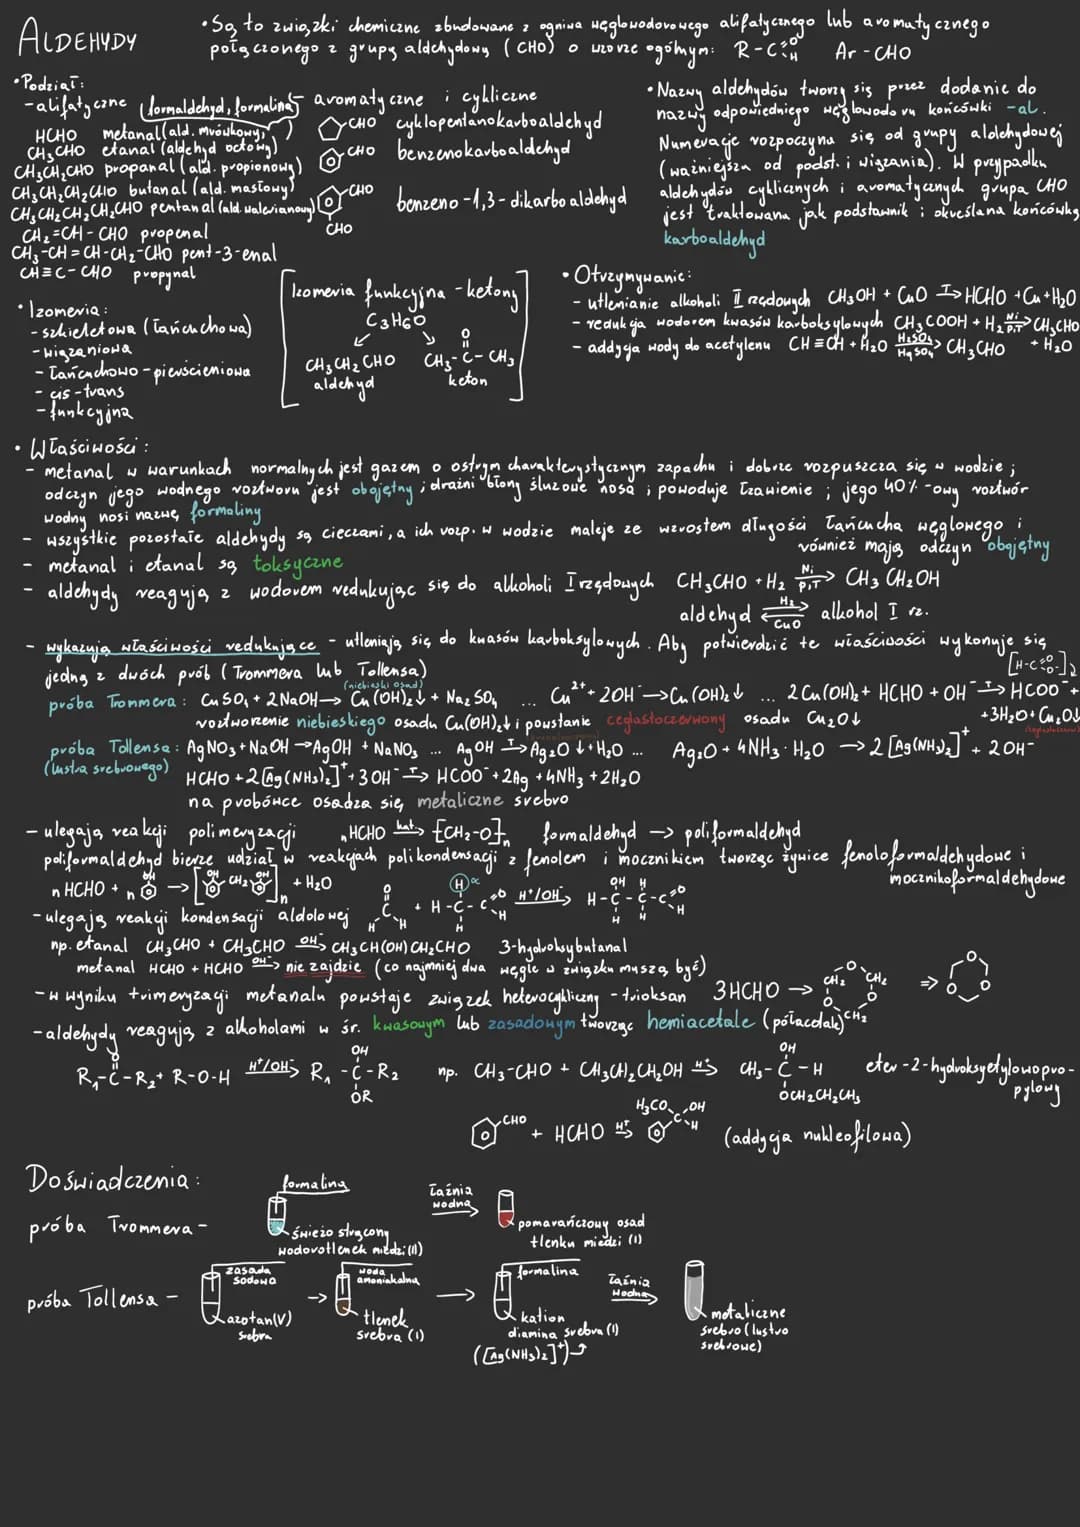 ALDEHYDY
• Są to związki chemiczne zbudowane z ogniwa węglowodorowego alifatycznego lub aromatycznego
połączonego z grupą aldehydową (CHO) o wzorze ogólnym: R-C=O H Ar-CHO
• Podział:
- alifatyczne (formaldehyd, formalina)
HCHO metanal (ald. mrówkowy, )
CH₃CHO etanal (aldehyd octowy)
CH₃CH₂CHO propanal (ald. propionowy)
CH₃CH₂CH₂CHO butanal (ald. masłowy)
CH₃CH₂CH₂CH₂CHO pentanal (ald. walerianowy)
CH₂=CH-CHO propenal
CH₃-CH=CH-CH₂-CHO pent-3-enal
CH≡C-CHO propynal
- aromatyczne i cykliczne
CHO cyklopentanokarboaldehyd
CHO benzenokarboaldehyd
CHO
CHO
benzeno-1,3-dikarboaldehyd
• Nazwy aldehydów tworzą się przez dodanie do
nazwy odpowiedniego węglowodoru końcówki -al.
Numerację rozpoczyna się od grupy aldehydowej
(ważniejsza od podst. i wiązania). W przypadku
aldehydów cyklicznych i aromatycznych grupa CHO
jest traktowana jak podstawnik i określana końcówką
karboaldehyd
• Izomeria:
- szkieletowa (łańcuchowa)
- wiązaniowa
- łańcuchowo-pierścieniowa
- cis-trans
- funkcyjna
Izomeria funkcyjna - ketony
C₃H₆O
CH₃CH₂CHO
aldehyd
O
CH₃-C-CH₃
keton
• Otrzymywanie:
- utlenianie alkoholi I rzędowych CH₃OH + CuO T→ HCHO + Cu + H₂O
- redukcja wodorem kwasów karboksylowych CH₃COOH + H₂ Ni p,T → CH₃CHO + H₂O
- addycja wody do acetylenu CH≡CH + H₂O H₂SO₄ HgSO₄ → CH₃CHO
• Właściwości:
- metanal w warunkach normalnych jest gazem o ostrym charakterystycznym zapachu i dobrze rozpuszcza się w wodzie;
odczyn jego wodnego roztworu jest obojętny; drażni błony śluzowe nosa i powoduje łzawienie; jego 40%-owy roztwór
wodny nosi nazwę formaliny
- wszystkie pozostałe aldehydy są cieczami, a ich rozp. w wodzie maleje ze wzrostem długości łańcucha węglowego i
również mają odczyn obojętny
- metanal i etanal są toksyczne
- aldehydy reagują z wodorem redukując się do alkoholi I rzędowych CH₃CHO + H₂ Ni p,T → CH₃CH₂OH
aldehyd H₂ ⇌ CuO alkohol I rz.
- wykazują właściwości redukujące - utleniają się do kwasów karboksylowych. Aby potwierdzić te właściwości wykonuje się
jedną z dwóch prób (Trommera lub Tollensa)
(niebieski osad)
próba Trommera: CuSO₄ + 2NaOH → Cu(OH)₂↓ + Na₂SO₄ ... Cu²⁺ + 2OH⁻ → Cu(OH)₂↓ ... 2Cu(OH)₂ + HCHO + OH⁻ T→ HCOO⁻ +
+3H₂O + Cu₂O↓
roztworzenie niebieskiego osadu Cu(OH)₂↓ i powstanie ceglastoczerwony osadu Cu₂O↓
próba Tollensa: AgNO₃ + NaOH → AgOH + NaNO₃ ... AgOH T→ Ag₂O↓ + H₂O ... Ag₂O + 4NH₃·H₂O → 2[Ag(NH₃)₂]⁺ + 2OH⁻
(lustra srebrowego)
HCHO + 2[Ag(NH₃)₂]⁺ + 3OH⁻ T→ HCOO⁻ + 2Ag + 4NH₃ + 2H₂O
na probówce osadza się metaliczne srebro
- ulegają reakcji polimeryzacji nHCHO kat.→ [CH₂-O]n formaldehyd → poliformaldehyd
poliformaldehyd bierze udział w reakcjach polikondensacji z fenolem i mocznikiem tworząc żywice fenoloformaldehydowe i
mocznikoformaldehydowe
nHCHO + n OH → [OH CH₂ OH]n + H₂O
- ulegają reakcji kondensacji aldolowej
O C H H + H-C-C=O H H H α H⁺/OH⁻→ OH H H-C-C-C=O H H H
np. etanal CH₃CHO + CH₃CHO OH⁻→ CH₃CH(OH)CH₂CHO 3-hydroksybutanal
metanal HCHO + HCHO OH⁻→ nie zajdzie (co najmniej dwa węgle w związku muszą być)
- w wyniku trimeryzacji metanalu powstaje związek heterocykliczny - trioksan 3HCHO → O CH₂ CH₂ O O CH₂ ⇒ O O O
- aldehydy reagują z alkoholami w śr. kwasowym lub zasadowym tworząc hemiacetale (półacetale)
O R₁-C-R₂ + R-O-H H⁺/OH⁻→ OH R₁-C-R₂ OR
np. CH₃-CHO + CH₃CH₂CH₂OH H⁺→ OH CH₃-C-H OCH₂CH₂CH₃
eter-2-hydroksyetylowopro-
pylowy
CHO + HCHO H⁺→ H₃CO OH C H (addycja nukleofilowa)
Doświadczenia:
próba Trommera -
formalina
świeżo strącony
wodorotlenek miedzi(II)
łaźnia
wodna
pomarańczowy osad
tlenku miedzi (I)
próba Tollensa -
zasada
sodowa
azotan(V)
srebra
woda
amoniakalna
tlenek
srebra (I)
formalina
kation
diamina srebra (I)
([Ag(NH₃)₂]⁺)
łaźnia
wodna
metaliczne
srebro (lustro
srebrowe)